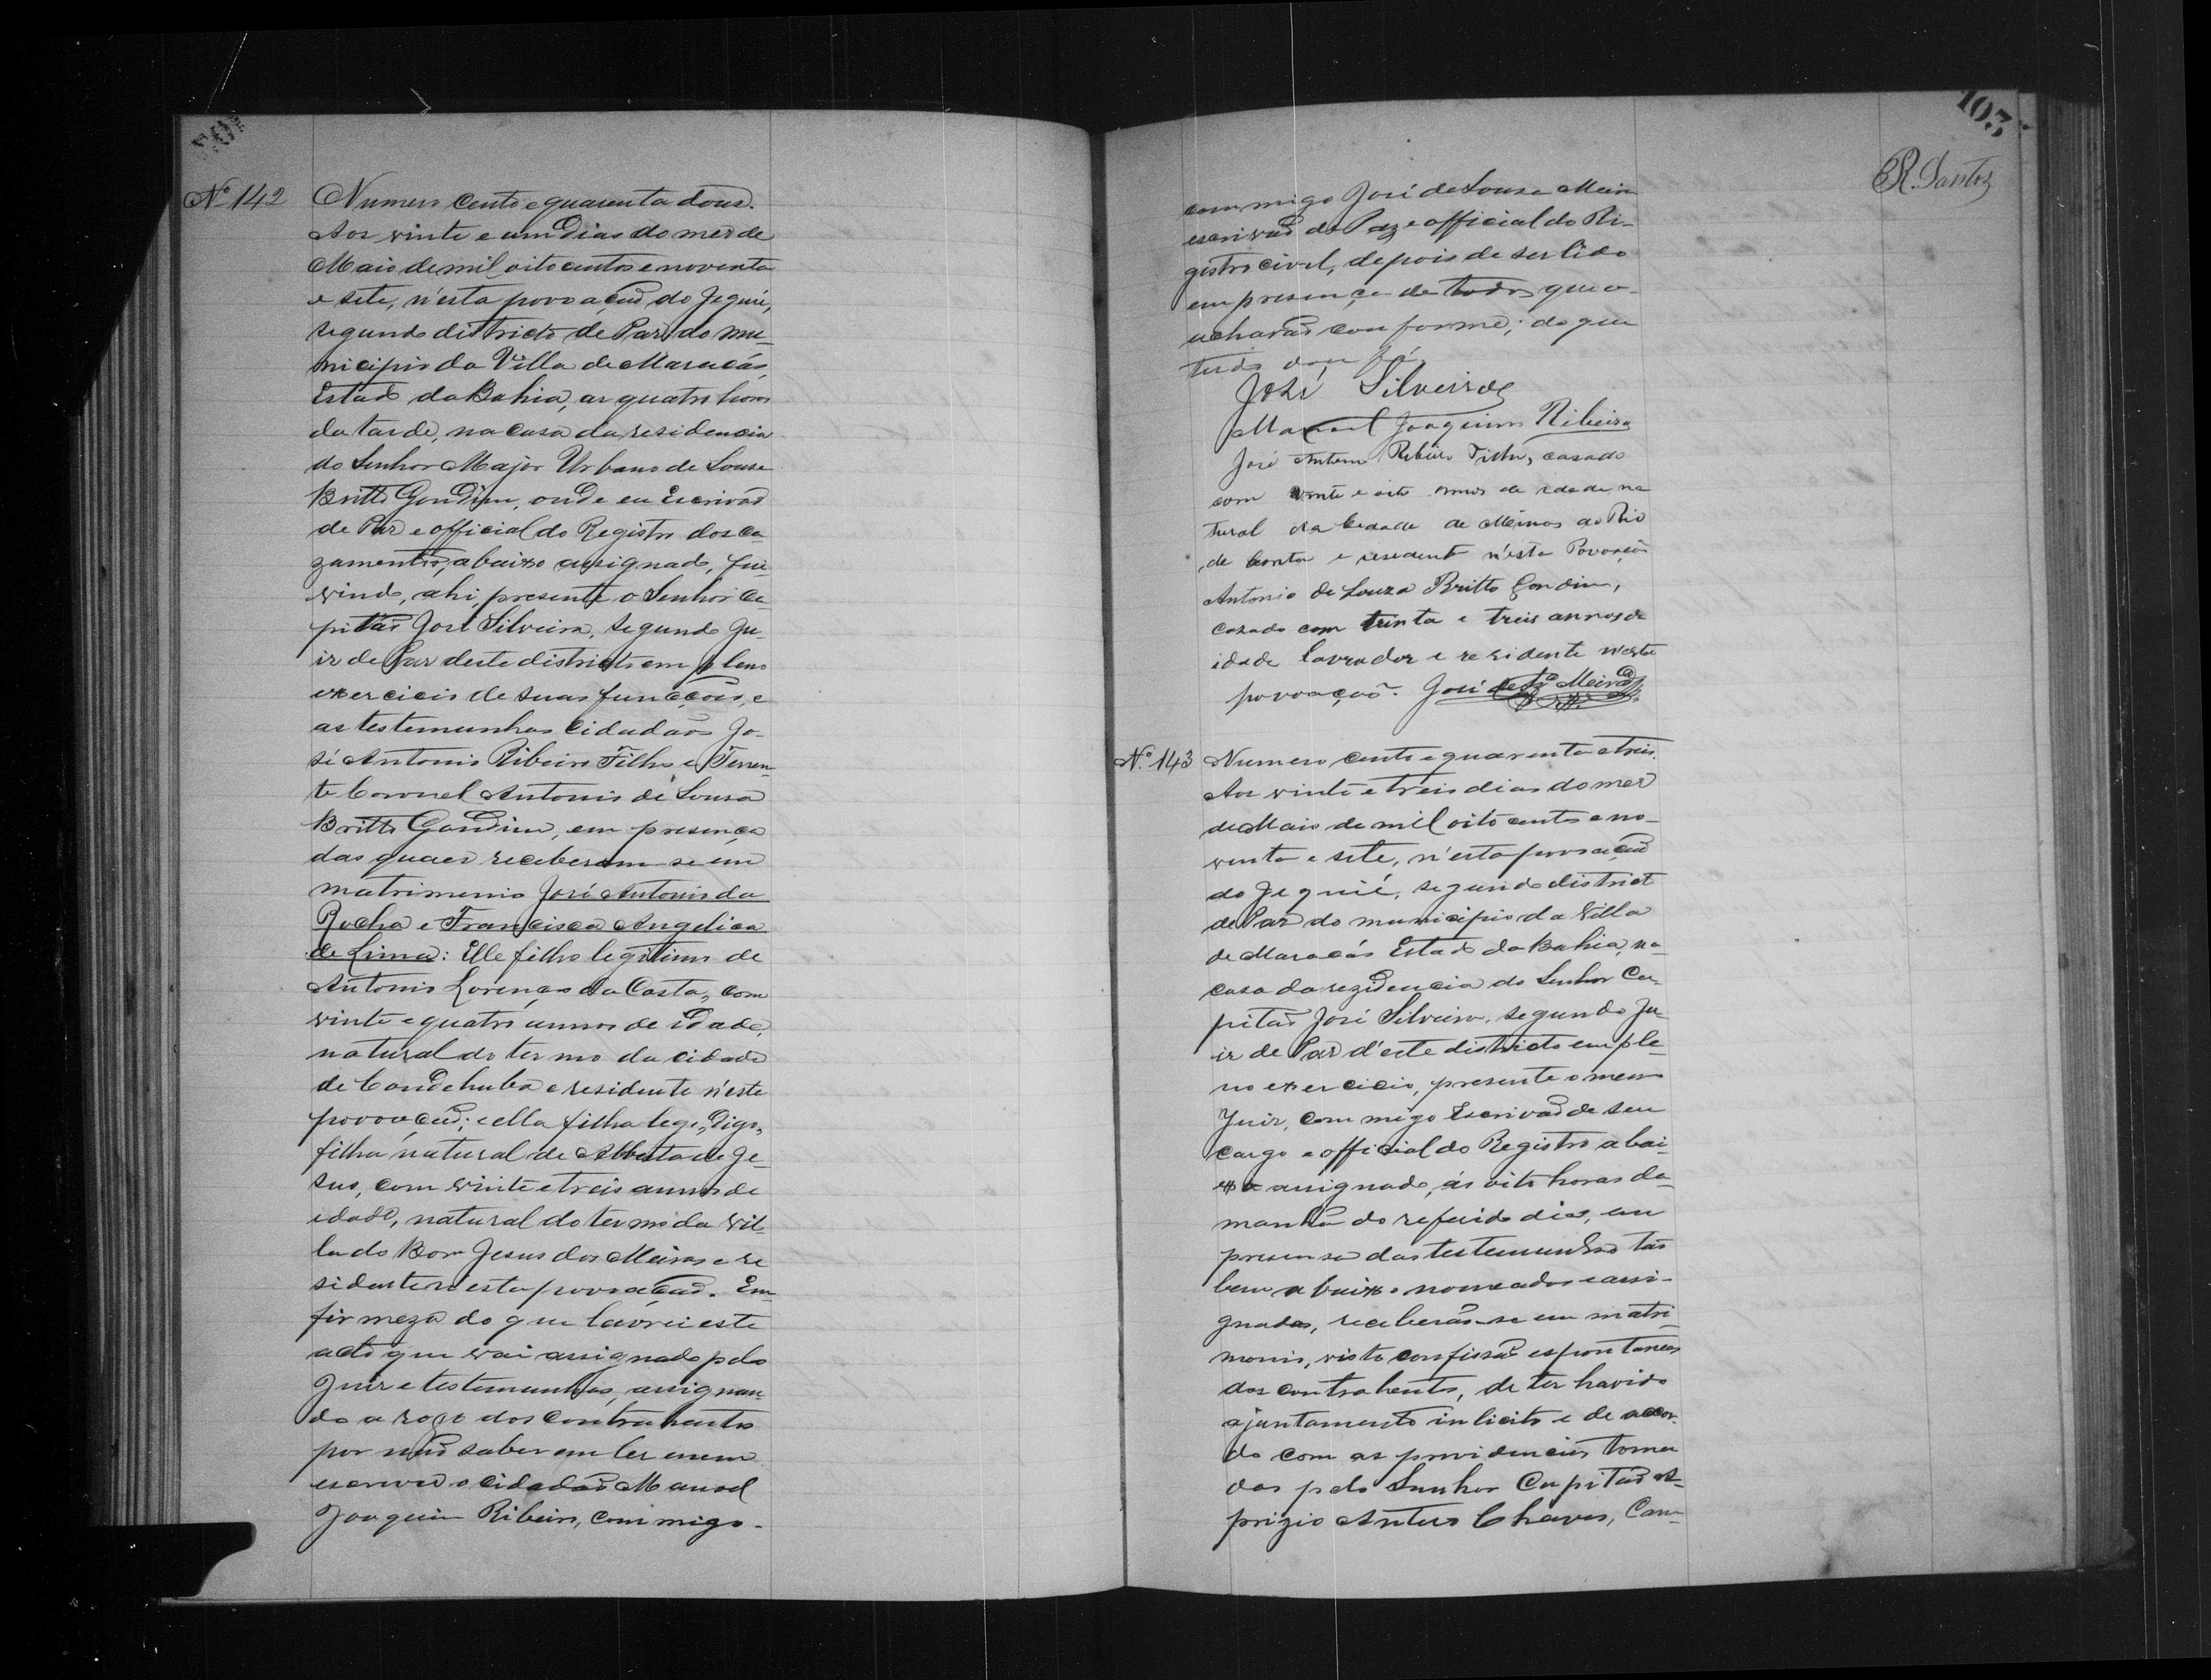 Nº 142
Numero cento e quarenta dous.
Aos vinte e um dias do mez de
Maio de mil oito centos e noventa
e sete, n'esta povoação do Jequié,
segundo districto de Paz do mu-
nicipio da Villa de Maracás,
Estado da Bahia, as quatro horas
da tarde, na casa da residencia
do Senhor Major Urbano de Sousa
Britto Gondim, onde eu Escrivão
de Paz e official do Registro dos ca-
zamentos, abaixo assignado, fui
vindo, ahi, presente o Senhor Ca-
pitão José Silveira, segundo Ju-
iz de Paz deste districto em pleno
exercicio de suas funcções, e
as testemunhas Cidadãos Jo-
sé Antonio Ribeiro Filho e Tenen-
te Coronel Antonio de Sousa
Britto Gondim, em presença
das quaes receberam-se em
matrimonio José Antonio da
Rocha e Francisca Angelica
de Lima: Elle filho legitimo de
Antonio Lorenço da Costa, com
vinte e quatro annos de idade,
natural do termo da cidade
de Condehuba e residente n'esta
povoação; e ella filha lege, digo,
filha natural de de Je-
sus, com vinte e treis annos de
idade, natural do termo da Vil-
la do Bom Jesus dos Meiras e re
sidente n'esta povoação. Em
firmeza do que lavrei este
acto que vai assignado pelo
Juiz e testemunhas, assignan-
do a rogo dos contrahentes
por não saberem ler e nem
escrever o cidadão Manoel
Joaquim Ribeiro, commigo.
103
R. Santos
commigo José de Sousa Meira
escrivão de Paz e official do Ri-
gistro civil, depois de ser lido
em presença de todos que o
acharão conforme; do que
tudo dou fé.
José Silveira
Manoel Joaquim Ribeiro
José Antonio Ribeiro Filho, casado
com vinte e oito annos de idade, na
tural da Cidade de Minas do Rio
de Contas e residente n'esta Povoação
Antonio de Souza Britto Gondim,
casado com trinta e treis annos de
idade lavrador e residente nesta
povoação. José de Sza Meira
Nº 143
Numero cento e quarenta e treis.
Aos vinte e treis dias do mez
de Maio de mil oito centos e no-
venta e sete, n'esta povoação
do Jequié, segundo district
de Paz do municipio da Villa
de Maracás Estado da Bahia, na
casa da rezidencia do Senhor Ca-
pitão José Silveira, segundo Ju-
iz de Paz d'este districto em ple-
no exercicio, presente o mesmo
Juiz, commigo Escrivão de seu
cargo e official do Registro abai-
xo assignado, ás oito horas da
manhã do referido dia, em
presensa das testemunhas tão
bem abaixo nomeadas e assi-
gnadas, receberão-se em matri-
monio, visto confissão espontanea
dos contrahentes, de ter havido
ajuntamento inlicito e de accor-
do com as providencias toma
das pelo Senhor Capitão A-
prizio Antero Chaves, Com-